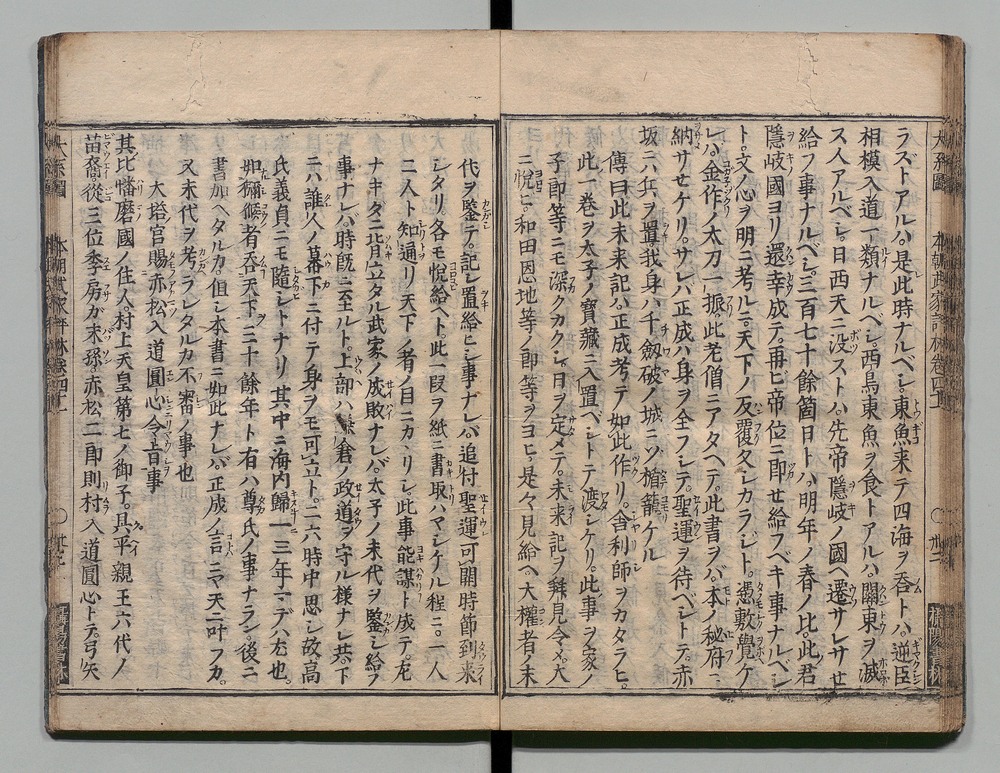 ラズトアルハ。是此時ナルベシ。東魚来テ四海ヲ呑トハ。逆臣
相模入道一類ナルベシ。西鳥東魚ヲ食トアルハ。關東ヲ滅
ス人アルベシ。日西天ニ没ストハ。先帝隱岐ノ國ヘ遷サレサセ
給フ事ナルベシ。三百七十餘箇日トハ。明年ノ春ノ比。此君
隱岐國ヨリ還幸成テ。再ビ帝位ニ即セ給フベキ事ナルベシ
ト。文ノ心ヲ明ニ考ルニ。天下ノ反覆久シカラジト。憑敷覺ケ
レハ。金作ノ太刀一振。此老僧ニアタヘテ。此書ヲバ。本ノ秘府ニ
納サセケリ。サレハ正成ハ身ヲ全フシテ。聖運ヲ待ベシトテ。赤
坂ニハ兵ヲ置。我身ハ千劔破ノ城ニソ楯籠ケル
傳曰此未来記ハ。正成考テ如此作リ。舎利師ヲカタラヒ。
此一巻ヲ太子ノ寳藏ニ入置ベシトテ。渡シケリ。此事ヲ家ノ
子郎等ニモ深クカクシ。日ヲ定メテ。未来記ヲ拜見令メ。大
ニ悦ヒ。和田恩地等ノ郎等ヲヨヒ。是々見給ヘ。大權者ノ末
代ヲ鑒テ。記シ置給ヒシ事ナレバ。追付聖運可開時節到来
シタリ。各モ悦給ヘト此一段ヲ紙ニ書取ハマシケル程ニ。一人
二人ト知通リ天下ノ者ノ目ニカヽリシ。此事能謀ト成テ。左
ナキダニ北月立タル武家ノ成敗ナレバ。太子ノ末代ヲ鑒シ給フ
事ナレハ。時既ニ至ルト。上部ハ鎌倉ノ政道ヲ守ル様ナレ共。下
ニハ誰人ノ幕下ニ付テ身ヲモ可立ト。二六時中思シ故高
氏義貞ニモ隨シトナリ 其中ニ海内歸一三年マデハ左也。
如獼猴者呑天下ヲ三十餘年ト有ハ尊氏ノ事ナラン。後ニ
書加ヘタルカ。但シ本書ニ如此ナレバ。正成ノ言ニヤ天ニ叶フカ。
又末代ヲ考ラレタルカ不審ノ事也
大塔宮賜赤松入道圓心令旨事
其比幡磨國ノ住人。村上天皇第七ノ御子。具平親王六代ノ
苗裔。從三位季房ガ末孫。赤松二郎則村入道圓心トテ。弓矢